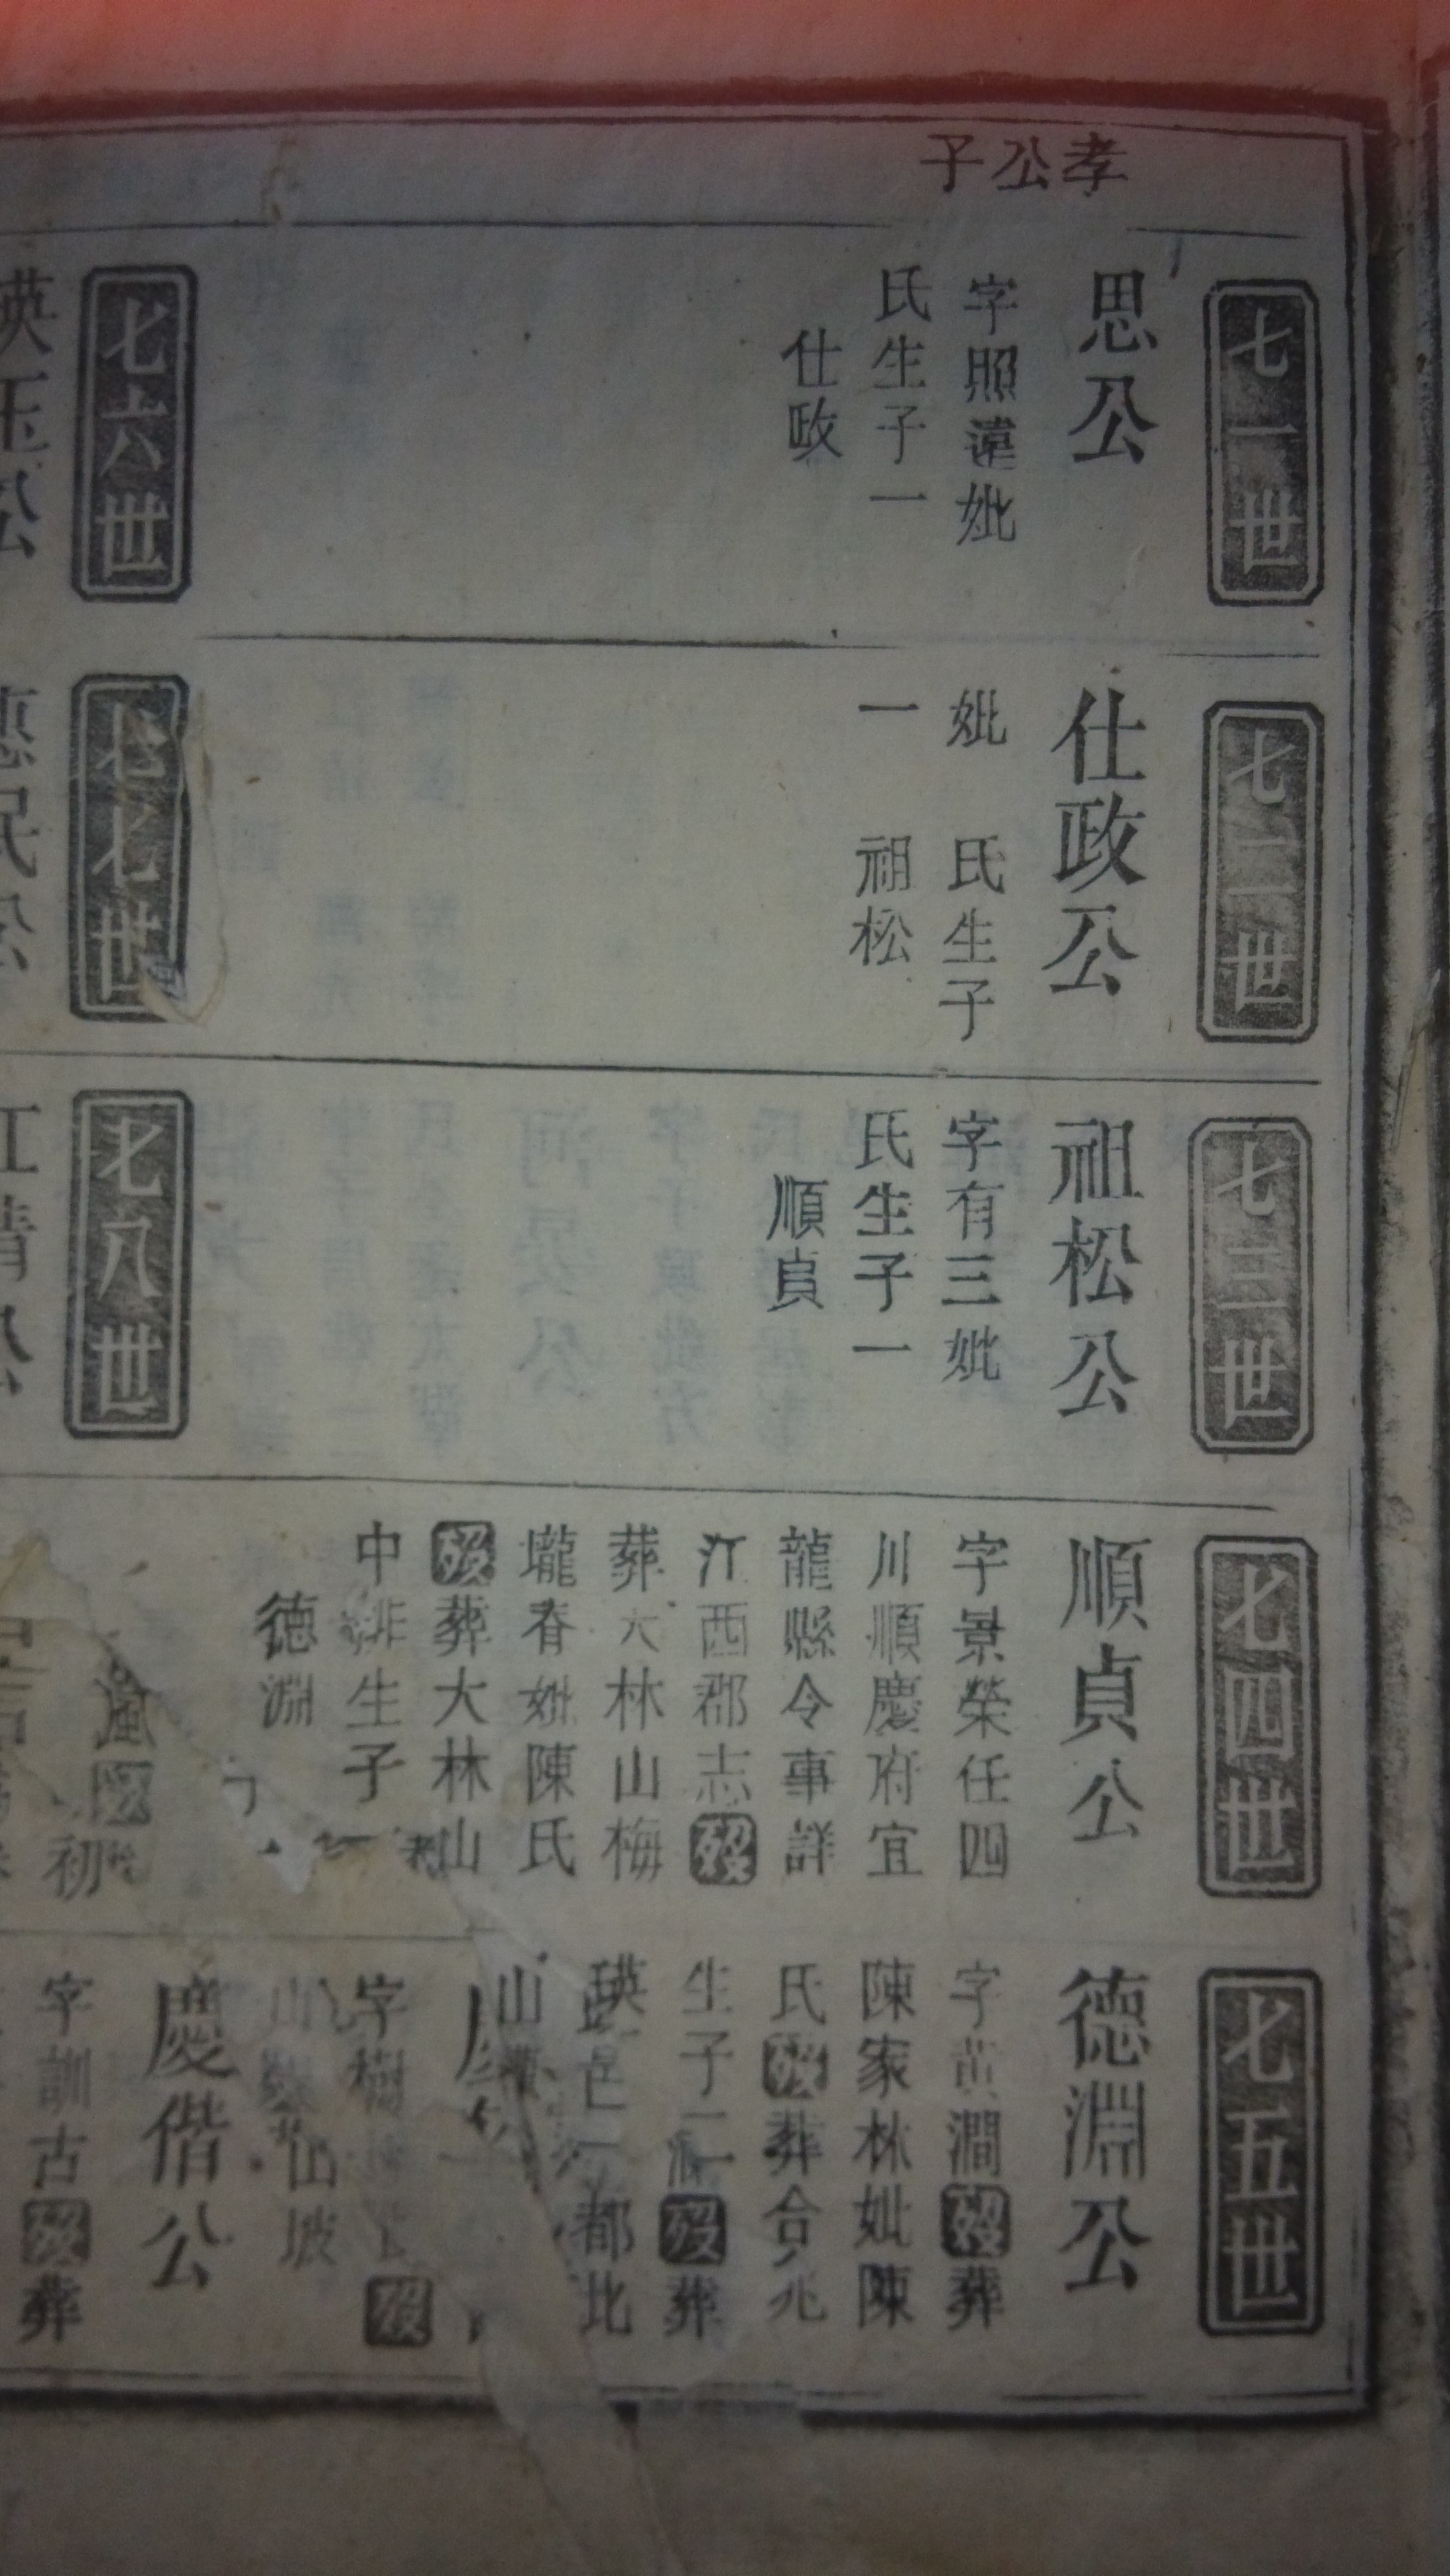 孝公子
七一世
思公
字照遠妣
氏生子一
仕政
七二世
仕政公
妣 氏生子
一 祖松
七三世
祖松公
字有三妣
氏生子一
順貞
七四世
順貞公
字景榮任四
川順慶府宜
龍縣令事詳
江西郡志歿
葬大林山梅
壠春妣陳氏
歿葬大林山
中排生子一
德淵
七五世
德淵公
字黃澗歿葬
陳家林妣陳
氏歿葬合兆
生子二 歿葬
瑛 都北
山
字樹 歿
山 山坡
慶偕公
字訓古歿葬
七六世
瑛玉公
七七世
惠民公
七八世
江清公
初